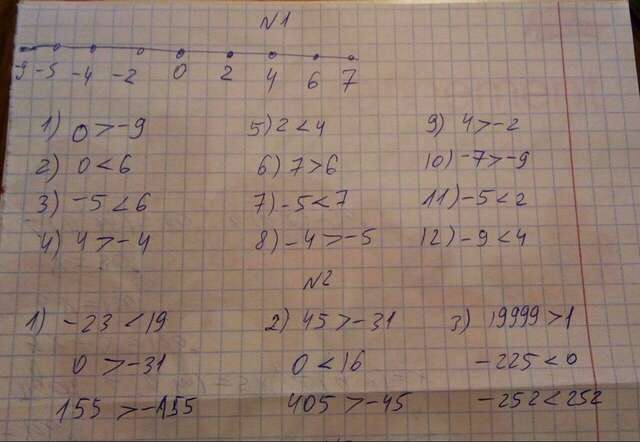 N1
-9 -5 -4 -2 0 2 4 6 7
1) 0 > -9 5) 2 < 4 9) 4 > -2
2) 0 < 6 6) 7 > 6 10) -7 > -9
3) -5 < 6 7) -5 < 7 11) -5 < 2
4) 4 > -4 8) -4 > -5 12) -9 < 4
N2
1) -23 < 19 2) 45 > -31 3) 19999 > 1
0 > -31 0 < 16 -225 < 0
155 > -155 405 > -45 -252 < 252